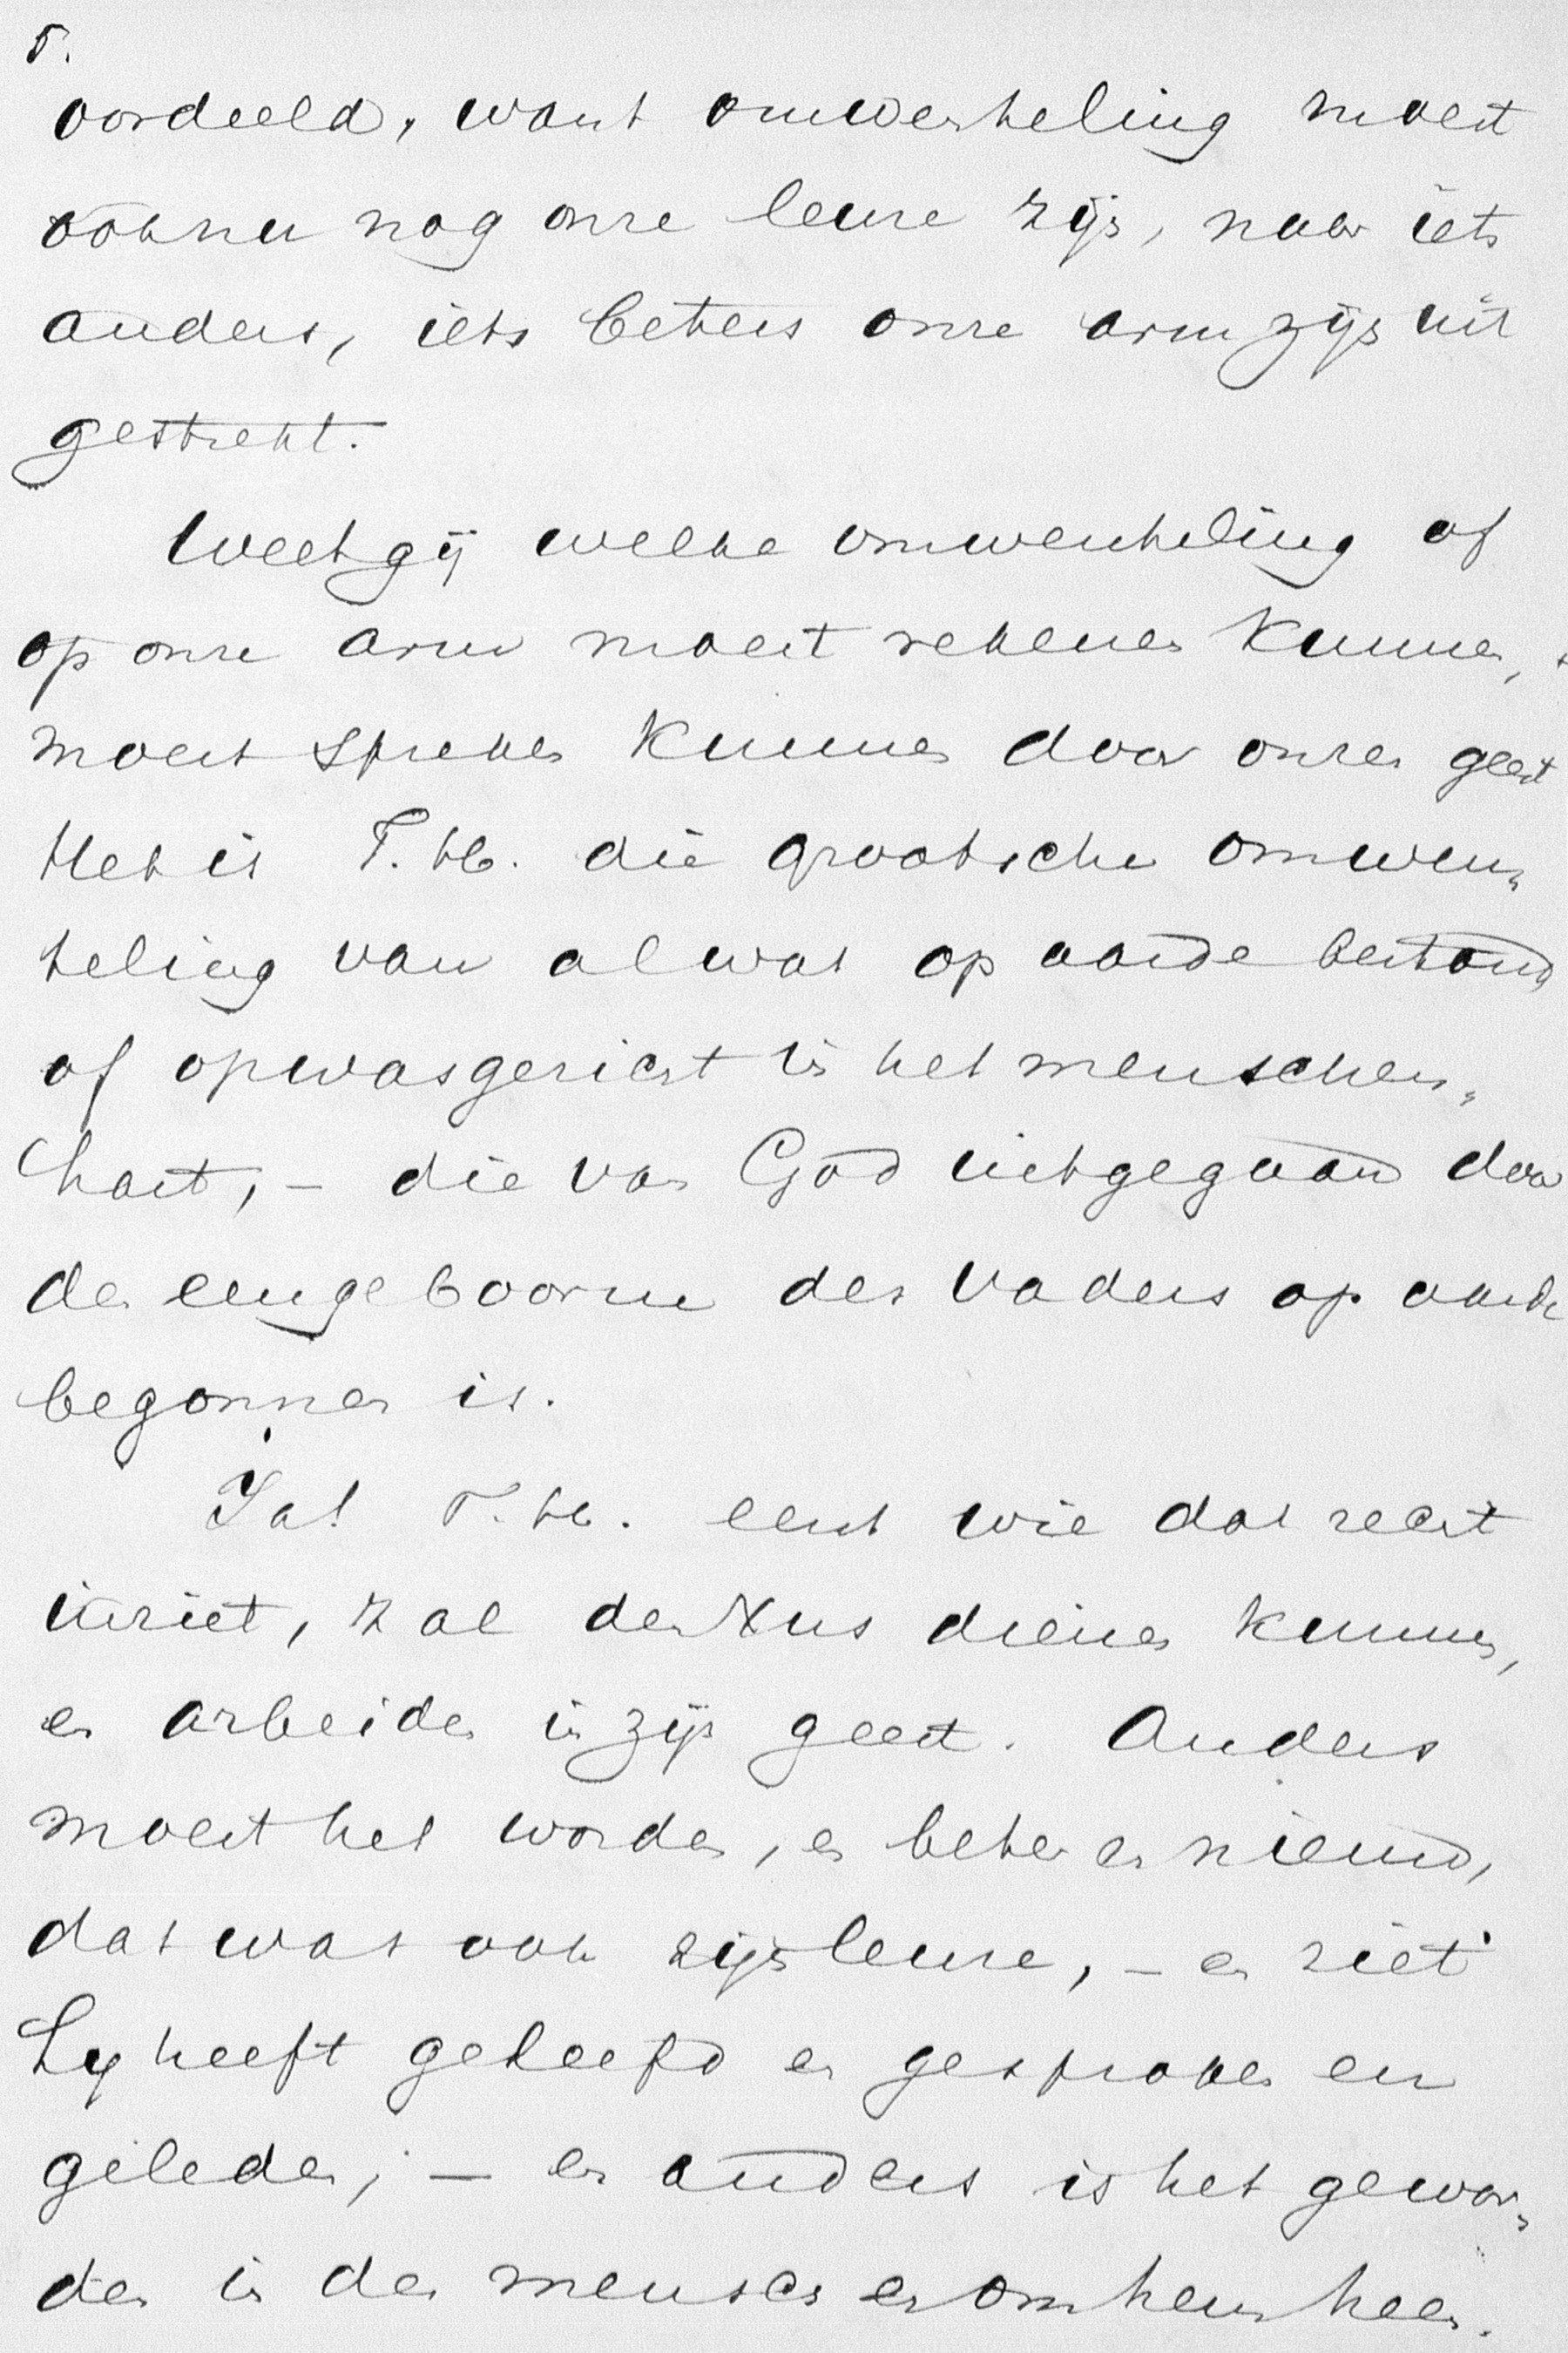 5.
oordeeld, want omwenteling moest
ook nu nog onze leuze zijn, naar iets
anders, iets beters onze arm zijn uit
gestrekt.
Weet gij welke omwenteling of
op onze arm moest rekenen kunnen,
moest spreken kunnen door onzen geest
Het is T. H. die grootsche omwen„
teling van al wat op aarde bestond
of opwasgericht in het menschen„
hart, – die van God uitgegaan door
den eengeboorne des Vaders op aarde
begonnen is.
Ja! T. H. eerst wie dat recht
inziet, zal den Xtus dienen kunnen,
en arbeiden in zijn geest. Anders
moest het worden, en beter en nieuw,
dat was ook zijn leuze, – en ziet
Hij heeft geleefd en gesproken en
geleden, – en anders is het gewor„
den in den mensch en om hem heen.